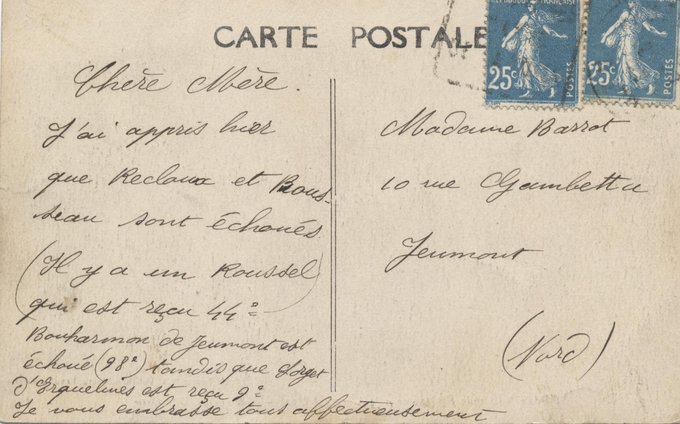 CARTE POSTALE
25c
25c
POSTES
POSTES
Chère Mère.
J'ai appris hier
que Reclaux et Rous-
seau sont échoués.
(Il y a un Roussel
qui est reçu 44e
Bouharmon de Jeumont est
échoué (98e) tandis que Sorget
d'Erquelines est reçu 9e
Je vous embrasse tous affectueusement
Madame Barrot
10 rue Gambetta
Jeumont
(Nord)